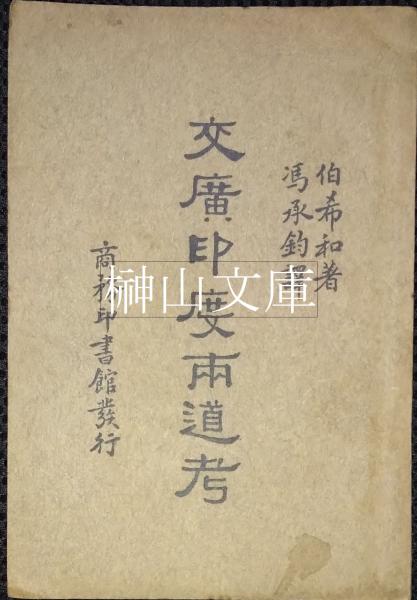 伯希和著
馮承鈞譯
交廣印度兩道考
商務印書館發行
榊山文庫